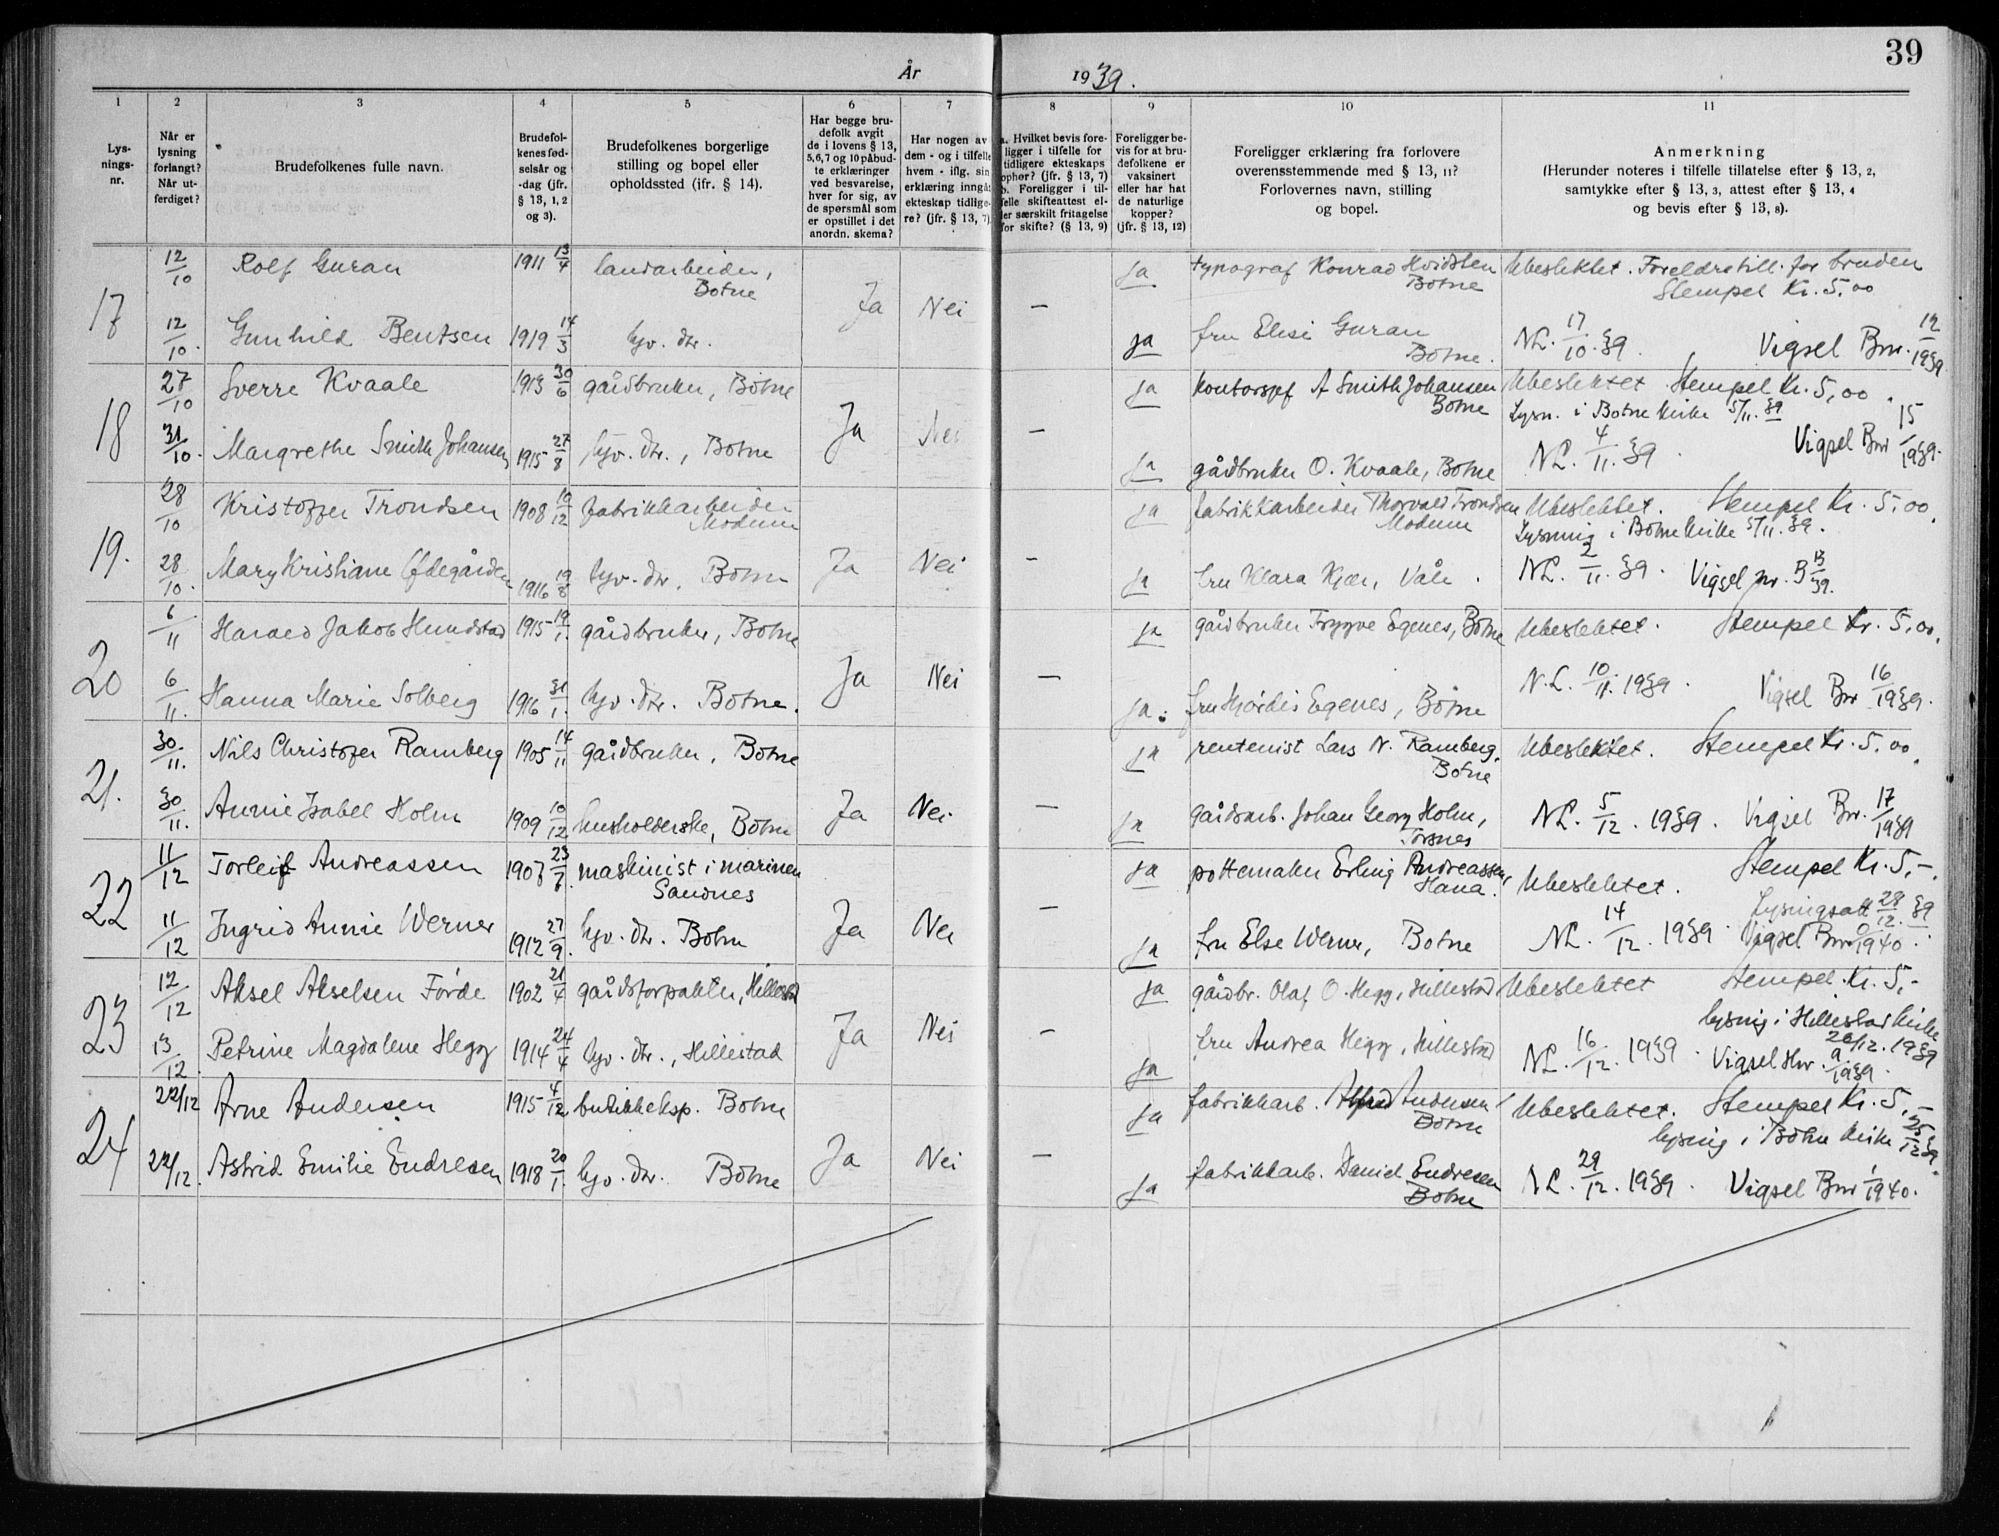 39
År
1939.
1 2 3 4 5 6 7 8 9 10 11
Lys-
nings-
nr.
Når er
lysning
forlangt?
Når ut-
ferdiget?
Brudefolkenes fulle navn.
Brudefol-
kenes fød-
selsår og
-dag (jfr.
§ 13, 1, 2
og 3).
Brudefolkenes borgerlige
stilling og bopel eller
opholdssted (ifr. § 14).
Har begge bru-
defolk avgit
de i lovens § 13,
5,6,7 og 10 påbud-
te erklæringer
ved besvarelse,
hver for sig, av
de spørsmål som
er opstillet i det
anordn. skema?
Har nogen av
dem - og i tilfelle
hvem - iflg. sin
erklæring inngåt
ekteskap tidlige-
re? (jfr. § 13, 7)
a. Hvilket bevis fore-
ligger i tilfelle for
tidligere ekteskaps
ophør? (jfr. § 13, 7)
b. Foreligger i til-
felle skifteattest el-
ler særskilt fritagelse
for skifte? (§ 13, 9)
Foreligger be-
vis for at bru-
defolkene er
vaksinert
eller har hat
de naturlige
kopper?
(jfr. § 13, 12)
Foreligger erklæring fra forlovere
overensstemmende med § 13, 11?
Forlovernes navn, stilling
og bopel.
Anmerkning
(Herunder noteres i tilfelle tillatelse efter § 13, 2,
samtykke efter § 13, 3, attest efter § 13, 4
og bevis efter § 13, 8).
17 12/10 Rolf Guran 1911 13/4 landarbeider, Botne Ja Nei — ja typograf Konrad Hvidsten Botne Ubeslektet. Foreldretill. for bruden
Stempel Kr. 5,00
12/10. Gunhild Bentsen 1919 14/3 hjv. dtr. ja fru Elise Guran Botne. NL. 17/10.39. Vigsel Bnr. 12/1939
18 27/10 Sverre Kvaale 1913 30/6 gårdbruker, Botne Ja Nei — ja kontorsjef A Smith Johansen Botne Ubeslektet Stempel Kr. 5,00.
Lysn. i Botne kirke 5/11.39
31/10. Margrethe Smith Johansen 1915 27/8 hjv. dtr., Botne ja gårdbruker O. Kvaale, Botne NL. 4/11.39. Vigsel Bnr 15/1939.
19. 28/10 Kristoffer Trondsen 1908 10/12 fabrikkarbeider Modum Ja Nei — ja fabrikkarbeider Thorvald Trondsen Modum Ubeslektet. Stempel Kr. 5,00.
Lysning i Botne kirke 5/11.39.
28/10. Mary Kristiane Ødegården 1916 19/8 hjv. dtr. Botne ja fru Klara Kjær, Våle. NL. 2/11.39. Vigsel nr. B 13/39.
20 6/11 Harald Jakob Hundstad 1915 19/1. gårdbruker, Botne Ja Nei — ja gårdbruker Trygve Egenes, Botne Ubeslektet. Stempel Kr. 5,00.
6/11. Hanna Marie Solberg 1916 31/1. hjv. dtr. Botne. ja. fru Hjørdis Egenes, Botne N.L. 10/11.1939. Vigsel Bnr 16/1939.
21. 30./11. Nils Christofer Ramberg 1905 14/11 gårdbruker, Botne Ja Nei. — ja rentenist Lars N. Ramberg. Botne Ubeslektet. Stempel Kr. 5,00.
30/11. Annie Isabel Holm 1909 10/12 husholderske, Botne ja gårdsarb. Johan Georg Holm, Torsnes NL. 5/12.1939. Vigsel Bnr. 17/1939
22 11/12 Torleif Andreassen 1907 maskinist i marinen Sandnes Ja Nei — ja pottemaker Erling Andreassen, Hana. Ubeslektet. Stempel Kr. 5,-.
Lysingsatt 28/12.39
11/12 Ingrid Annie Werner 1912 27/9. hjv. dtr. Botne ja fru Else Werner, Botne NL. 14/12.1939. Vigsel Bnr 1940.
23 12/12 Aksel Akselsen Førde 1902 21/4 gårdsforpakter, Hillestad Ja Nei — ja gårdbr. Olaf O. Hegg, Hillestad Ubeslektet Stempel. Kr. 5,-
lysnig i Hillestad kirke
26/12.1939
13/12. Petrine Magdalene Hegg 1914 24/4 hjv. dtr., Hillestad ja fru Andrea Hegg, Hillestad NL. 16/12.1939. Vigsel Hnr. 9/1939.
24 22/12 Arne Andersen 1915 4/12 butikkeksp. Botne Ja Nei — ja fabrikkarb. Alfred Andersen Botne Ubeslektet. Stempel Kr. 5,-
lysnig i Botne kirke 25/12 39.
22/12. Astrid Emilie Endresen 1918 20/1. hjv. dtr. Botne ja fabrikkarb. Daniel Endresen Botne NL. 29/12.1939. Vigsel Bnr 1/1940.